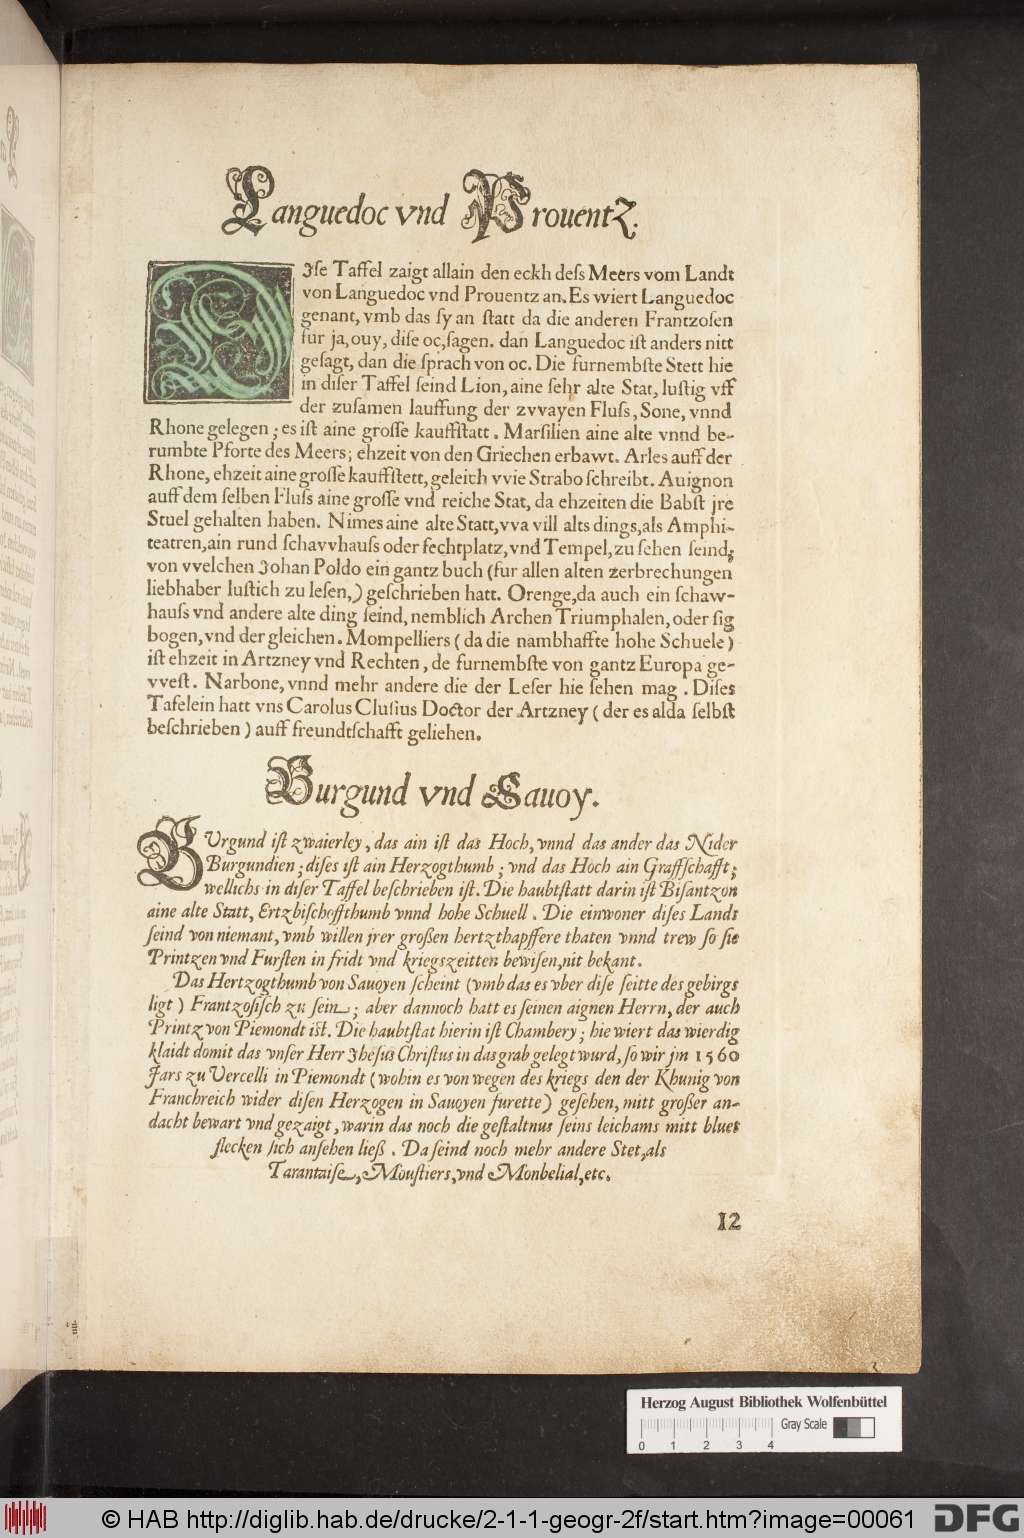 Languedoc vnd Prouentz.
DJſe Taffel zaigt allain den eckh deſs Meers vom Landt
von Languedoc vnd Prouentz an. Es wiert Languedoc
genant, vmb das ſy an ſtatt da die anderen Frantzoſen
fur ja, ouy, diſe oc, ſagen. dan Languedoc iſt anders nitt
geſagt, dan die ſprach von oc. Die furnembſte Stett hie
in diſer Taffel ſeind Lion, aine ſehr alte Stat, luſtig vff
der zuſamen lauffung der zvvayen Fluſs, Sone, vnnd
Rhone gelegen; es iſt aine groſſe kauffſtatt. Marſilien aine alte vnnd be-
rumbte Pforte des Meers; ehzeit von den Griechen erbawt. Arles auff der
Rhone, ehzeit aine groſſe kauffſtett, geleich vvie Strabo ſchreibt. Auignon
auff dem ſelben Fluſs aine groſſe vnd reiche Stat, da ehzeiten die Babſt jre
Stuel gehalten haben. Nimes aine alte Statt, vva vill alts dings, als Amphi-
teatren, ain rund ſchavvhauſs oder fechtplatz, vnd Tempel, zu ſehen ſeind;
von vvelchen Johan Poldo ein gantz buch (fur allen alten zerbrechungen
liebhaber luſtich zu leſen,) geſchrieben hatt. Orenge, da auch ein ſchaw-
hauſs vnd andere alte ding ſeind, nemblich Archen Triumphalen, oder ſig
bogen, vnd der gleichen. Mompelliers (da die nambhaffte hohe Schuele)
iſt ehzeit in Artzney vnd Rechten, de furnembſte von gantz Europa ge-
vveſt. Narbone, vnnd mehr andere die der Leſer hie ſehen mag. Diſes
Tafelein hatt vns Carolus Cluſius Doctor der Artzney (der es alda ſelbſt
beſchrieben) auff freundtſchafft geliehen.
Burgund vnd Sauoy.
BUrgund iſt zwaierley, das ain iſt das Hoch, vnnd das ander das Nider
Burgundien; diſes iſt ain Herzogthumb; vnd das Hoch ain Graffſchafft;
wellichs in diſer Taffel beſchrieben iſt. Die haubtſtatt darin iſt Biſantzon
aine alte Statt, Ertzbiſchoffthumb vnnd hohe Schuell. Die einwoner diſes Lands
ſeind von niemant, vmb willen jrer großen hertzthapffere thaten vnnd trew ſo ſie
Printzen vnd Furſten in fridt vnd kriegszeitten bewiſen, nit bekant.
Das Hertzogthumb von Sauoyen ſcheint (vmb das es vber diſe ſeitte des gebirgs
ligt) Frantzoſiſch zu ſein; aber dannoch hatt es ſeinen aignen Herrn, der auch
Printz von Piemondt iſt. Die haubtſtat hierin iſt Chambery; hie wiert das wierdig
klaidt domit das vnſer Herr Jheſus Chriſtus in das grab gelegt wurd, ſo wir jm 1560
Jars zu Vercelli in Piemondt (wohin es von wegen des kriegs den der Khunig von
Franchreich wider diſen Herzogen in Sauoyen furette) geſehen, mitt großer an-
dacht bewart vnd gezaigt, warin das noch die geſtaltnus ſeins leichams mitt blues
flecken ſich anſehen ließ. Da ſeind noch mehr andere Stet, als
Tarantaiſe, Mouſtiers, vnd Monbelial, etc.
12
Herzog August Bibliothek Wolfenbüttel
Gray Scale
0 1 2 3 4
© HAB http://diglib.hab.de/drucke/2-1-1-geogr-2f/start.htm?image=00061
DFG